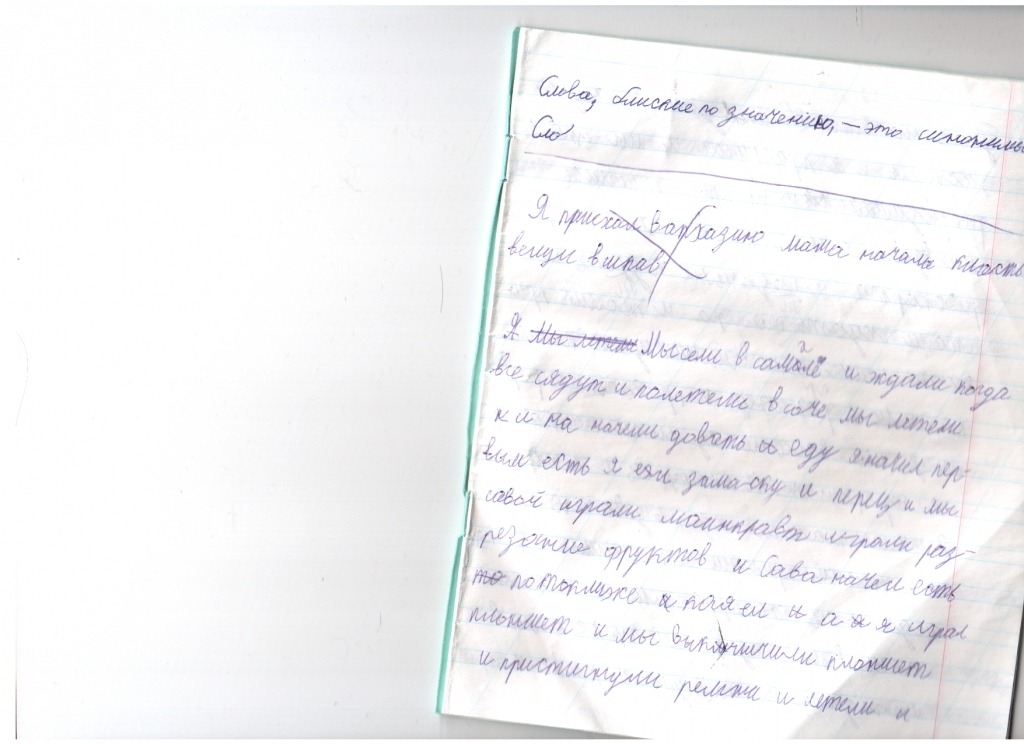 Слова, блиские по значению, — это синонимы
Сло
Я приехал в маma началы
вещи вшкав
Я Мы летели Мы сели в самолё и ждали когда
все сядут и полетели в соче мы летели
и на начели довать и еду я начил пер-
вым есть я ел и перец и мы
савой играли маинкравт играли раз-
резание фруктов и Сава начел есть
то потомже и ел и а я я играл
планшет и мы выключили планшет
и пристигнули ремни и летели и